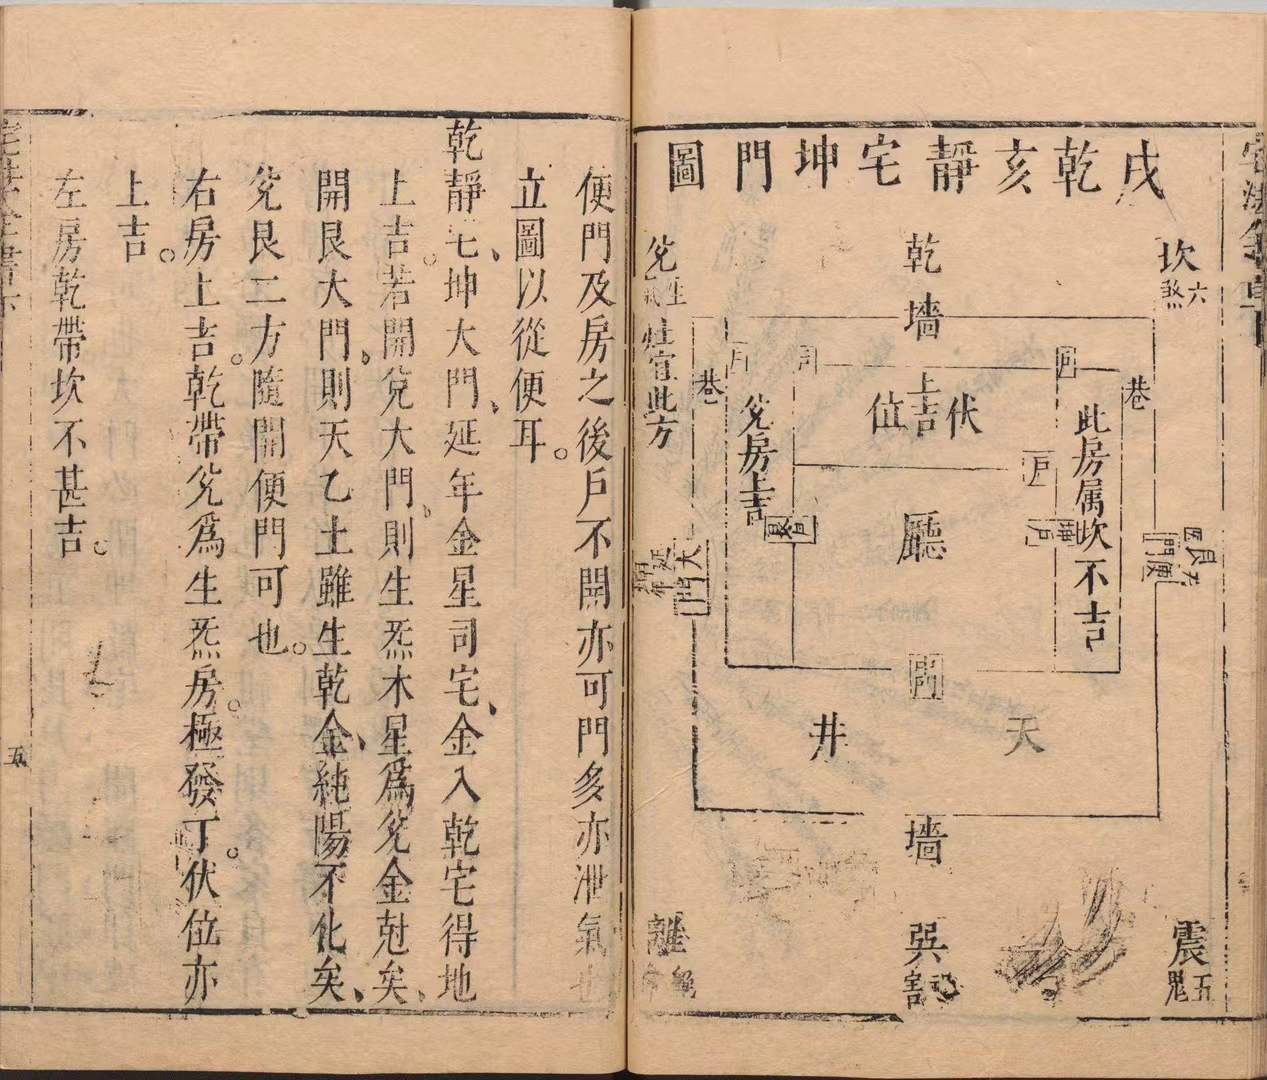 戌乾亥靜宅坤門圖
坎六煞
乾
墻
兌生
灶宜此方
巷
巷
戶
伏位
上吉
兌房上吉
此房属坎不吉
戶
廳
坤戶
艮
便門
大門
天井
墻
巽
離絕
震五鬼
便門及房之後戶不開亦可門多亦泄氣也
立圖以從便耳。
乾靜宅坤大門延年金星司宅金入乾宅得地
上吉。若開兌大門則生炁木星爲兌金尅矣
開艮大門則天乙土雖生乾金純陽不化矣
兌艮二方隨開便門可也。
右房上吉。乾帶兌爲生炁房。極發丁。伏位亦
上吉。
左房乾帶坎不甚吉。
五